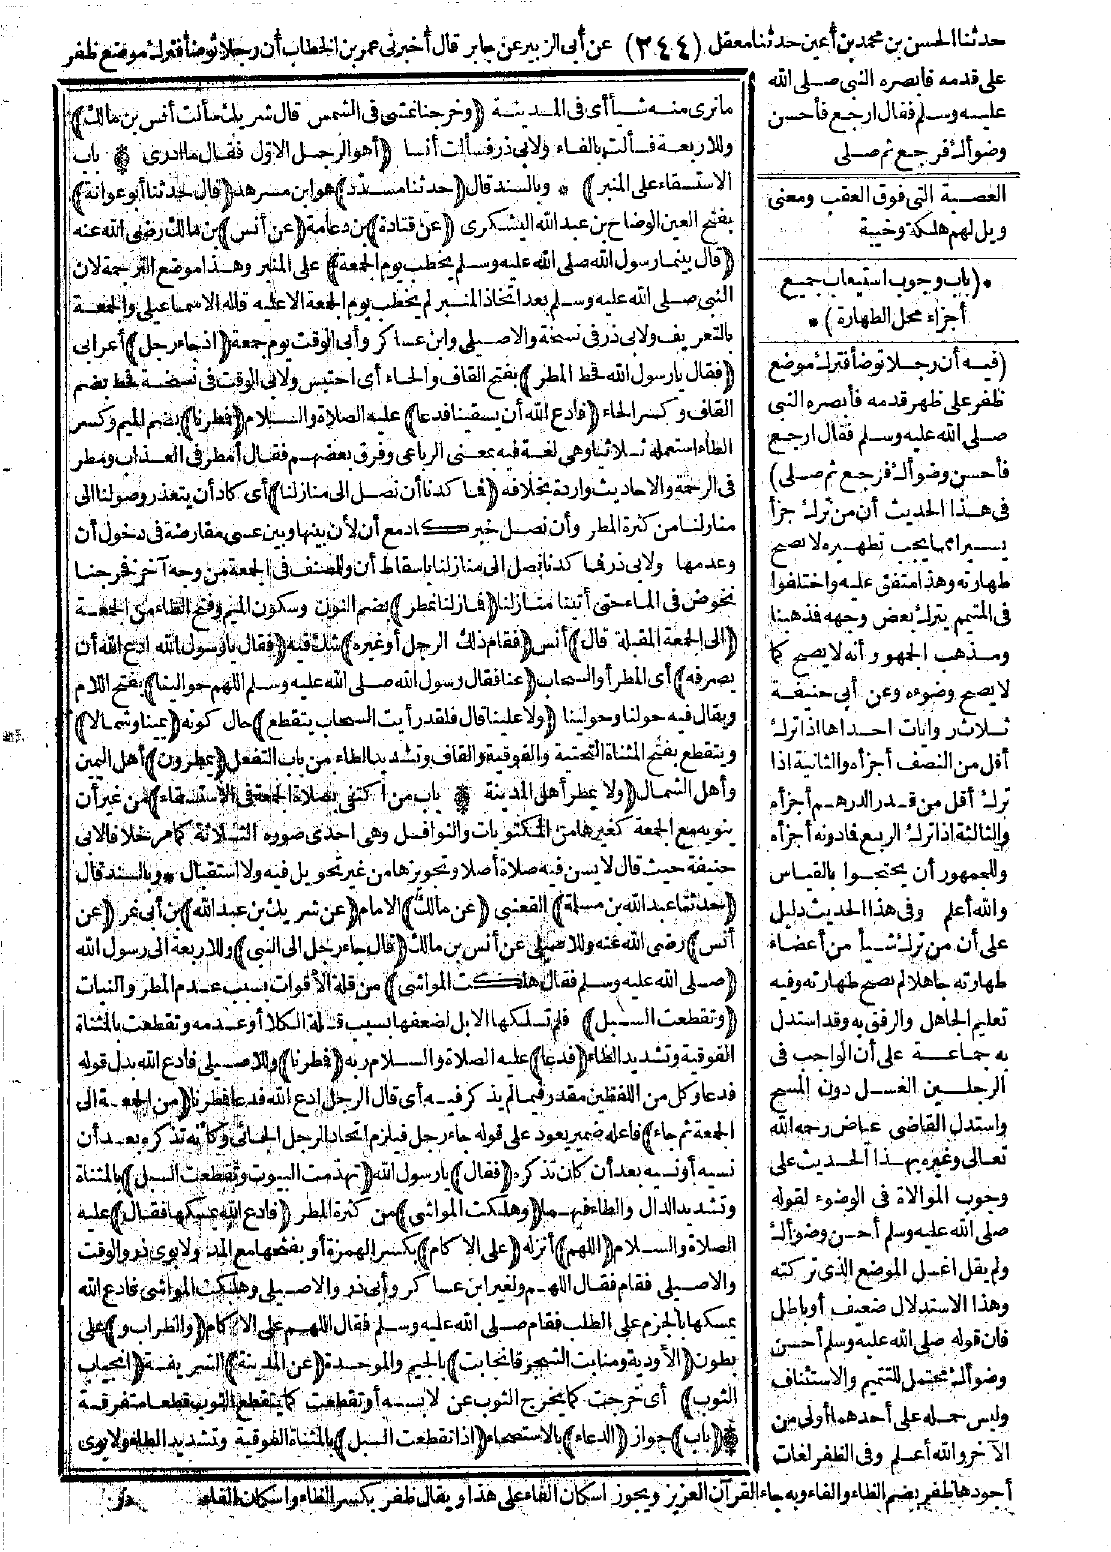 حدثنا الحسن بن محمد بن أعين حدثنا معقل (٢٤٤) عن أبي الزبير عن جابر قال أخبرني عمر بن الخطاب أن رجلا توضأ فترك موضع ظفر
على قدمه فأبصره النبي صلى الله
عليه وسلم فقال ارجع فأحسن
وضوأك فرجع ثم صلى
العصبة التي فوق العقب ومعنى
ويل لهم هلكة وخيبة
*(باب وجوب استيعاب جميع
أجزاء محل الطهارة)*
(فيه أن رجلا توضأ فترك موضع
ظفر على ظهر قدمه فأبصره النبي
صلى الله عليه وسلم فقال ارجع
فأحسن وضوأك فرجع ثم صلى)
في هذا الحديث أن من ترك جزأ
يسيرا مما يجب تطهيره لا تصح
طهارته وهذا متفق عليه واختلفوا
في المتيمم يترك بعض وجهه فذهبنا
ومذهب الجمهور أنه لا يصح كما
لا يصح وضوءه وعن أبي حنيفة
ثلاث روايات احداها اذا ترك
أقل من النصف أجزأه والثانية اذا
ترك أقل من قدر الدرهم أجزأه
والثالثة اذا ترك الربع فما دونه أجزأه
وللجمهور أن يحتجوا بالقياس
والله أعلم وفي هذا الحديث دليل
على أن من ترك شيأ من أعضاء
طهارته جاهلا لم تصح طهارته وفيه
تعليم الجاهل والرفق به وقد استدل
به جماعة على أن الواجب في
الرجلين الغسل دون المسح
واستدل القاضي عياض رحمه الله
تعالى وغيره بهذا الحديث على
وجوب الموالاة في الوضوء لقوله
صلى الله عليه وسلم أحسن وضوأك
ولم يقل اغسل الموضع الذي تركته
وهذا الاستدلال ضعيف أو باطل
فان قوله صلى الله عليه وسلم أحسن
وضوأك محتمل للتتميم والاستئناف
وليس حمله على أحدهما أولى من
الآخر والله أعلم وفي الظفر لغات
أجودها ظفر بضم الظاء والفاء وبه جاء القرآن العزيز ويجوز اسكان الفاء على هذا ويقال ظفر بكسر الظاء واسكان الفاء
ما ترى منه شيأ أي في المدينة (وخرجنا نمشي في الشمس قال شريك سألت أنس بن مالك)
وللاربعة فسألت بالفاء ولابي ذر فسألت أنسا (أهو الرجل الاول فقال ما أدري * باب
الاستسقاء على المنبر) * وبالسند قال (حدثنا مسدد) هو ابن مسرهد (قال حدثنا أبو عوانة)
بفتح العين الوضاح بن عبد الله اليشكري (عن قتادة) بن دعامة (عن أنس) بن مالك رضي الله عنه
(قال بينما رسول الله صلى الله عليه وسلم يخطب يوم الجمعة) على المنبر وهذا موضع الترجمة لان
النبي صلى الله عليه وسلم بعد اتخاذ المنبر لم يخطب يوم الجمعة الا عليه قاله الاسماعيلي والجمعة
بالتعريف ولابي ذر في نسخة والاصيلي وابن عساكر وأبي الوقت يوم جمعة (اذ جاء رجل) أعرابي
(فقال يا رسول الله قحط المطر) بفتح القاف والحاء أي احتبس ولابي الوقت في نسخة قحط بضم
القاف وكسر الحاء (فادع الله أن يسقينا فدعا) عليه الصلاة والسلام (فمطرنا) بضم الميم وكسر
الطاء استعمله ثلاثيا وهي لغة فيه بمعنى الرباعي وفرق بعضهم فقال أمطر في العذاب ومطر
في الرحمة والاحاديث واردة بخلافه (فما كدنا أن نصل الى منازلنا) أي كاد أن يتعذر وصولنا الى
منازلنا من كثرة المطر وأن نصل خبر كاد مع أن لأن بينها وبين عسى مقارضة في دخول أن
وعدمها ولابي ذر فما كدنا نصل الى منازلنا باسقاط أن وللمصنف في الجمعة من وجه آخر فخرجنا
نخوض في الماء حتى أتينا منازلنا (فما زلنا نمطر) بضم النون وسكون الميم وفتح الطاء من الجمعة
(الى الجمعة المقبلة قال) أنس (فقام ذلك الرجل أو غيره) شك فيه (فقال يا رسول الله ادع الله أن
يصرفه) أي المطر أو السحاب (عنا فقال رسول الله صلى الله عليه وسلم اللهم حوالينا) بفتح اللام
ويقال فيه حولنا وحولينا (ولا علينا قال فلقد رأيت السحاب يتقطع) حال كونه (يمينا وشمالا)
ويتقطع بفتح المثناة التحتية والفوقية والقاف وتشديد الطاء من باب التفعل (يمطرون) أهل اليمين
وأهل الشمال (ولا يمطر أهل المدينة * باب من اكتفى بصلاة الجمعة في الاستسقاء) من غير أن
ينويه مع الجمعة كغيرها من المكتوبات والنوافل وهي احدى صوره الثلاثة كما مر خلافا لابي
حنيفة حيث قال لا يسن فيه صلاة أصلا وتجويزها من غير تحويل فيه ولا استقبال * وبالسند قال
(حدثنا عبد الله بن مسلمة) القعنبي (عن مالك) الامام (عن شريك بن عبد الله) بن أبي نمر (عن
أنس) رضي الله عنه وللاصيلي عن أنس بن مالك (قال جاء رجل الى النبي) وللاربعة الى رسول الله
(صلى الله عليه وسلم فقال هلكت المواشي) من قلة الأقوات بسبب عدم المطر والنبات
(وتقطعت السبل) فلم تسلكها الابل لضعفها بسبب قلة الكلا أو عدمه وتقطعت بالمثناة
الفوقية وتشديد الطاء (فدعا) عليه الصلاة والسلام ربه (فمطرنا) وللاصيلي فادع الله بدل قوله
فدعا وكل من اللفظين مقدر فيما لم يذكر فيه أي قال الرجل ادع الله فدعا فمطرنا (من الجمعة الى
الجمعة ثم جاء) فاعله ضمير يعود على قوله جاء رجل فيلزم اتحاد الرجل الجائي وكأنه تذكره بعد أن
نسيه أو نسيه بعد أن كان تذكره (فقال) يا رسول الله (تهدمت البيوت وتقطعت السبل) بالمثناة
وتشديد الدال والطاء فيهما (وهلكت المواشي) من كثرة المطر (فادع الله يمسكها فقال) عليه
الصلاة والسلام (اللهم) أنزله (على الاكام) بكسر الهمزة أو بفتحها مع المد ولابوي ذر والوقت
والاصيلي فقام فقال اللهم ولغير ابن عساكر وأبي ذر والاصيلي وهلكت المواشي فادع الله
يمسكها بالجزم على الطلب فقام صلى الله عليه وسلم فقال اللهم على الاكام (والظراب و) على
بطون (الأودية ومنابت الشجر فانجابت) بالجيم والموحدة (عن المدينة) الشريفة (انجياب
الثوب) أي خرجت كما يخرج الثوب عن لابسه أو تقطعت كما يتقطع الثوب قطعا متفرقة
* (باب) جواز (الدعاء) بالاستصحاء (اذا تقطعت السبل) بالمثناة الفوقية وتشديد الطاء ولابوي